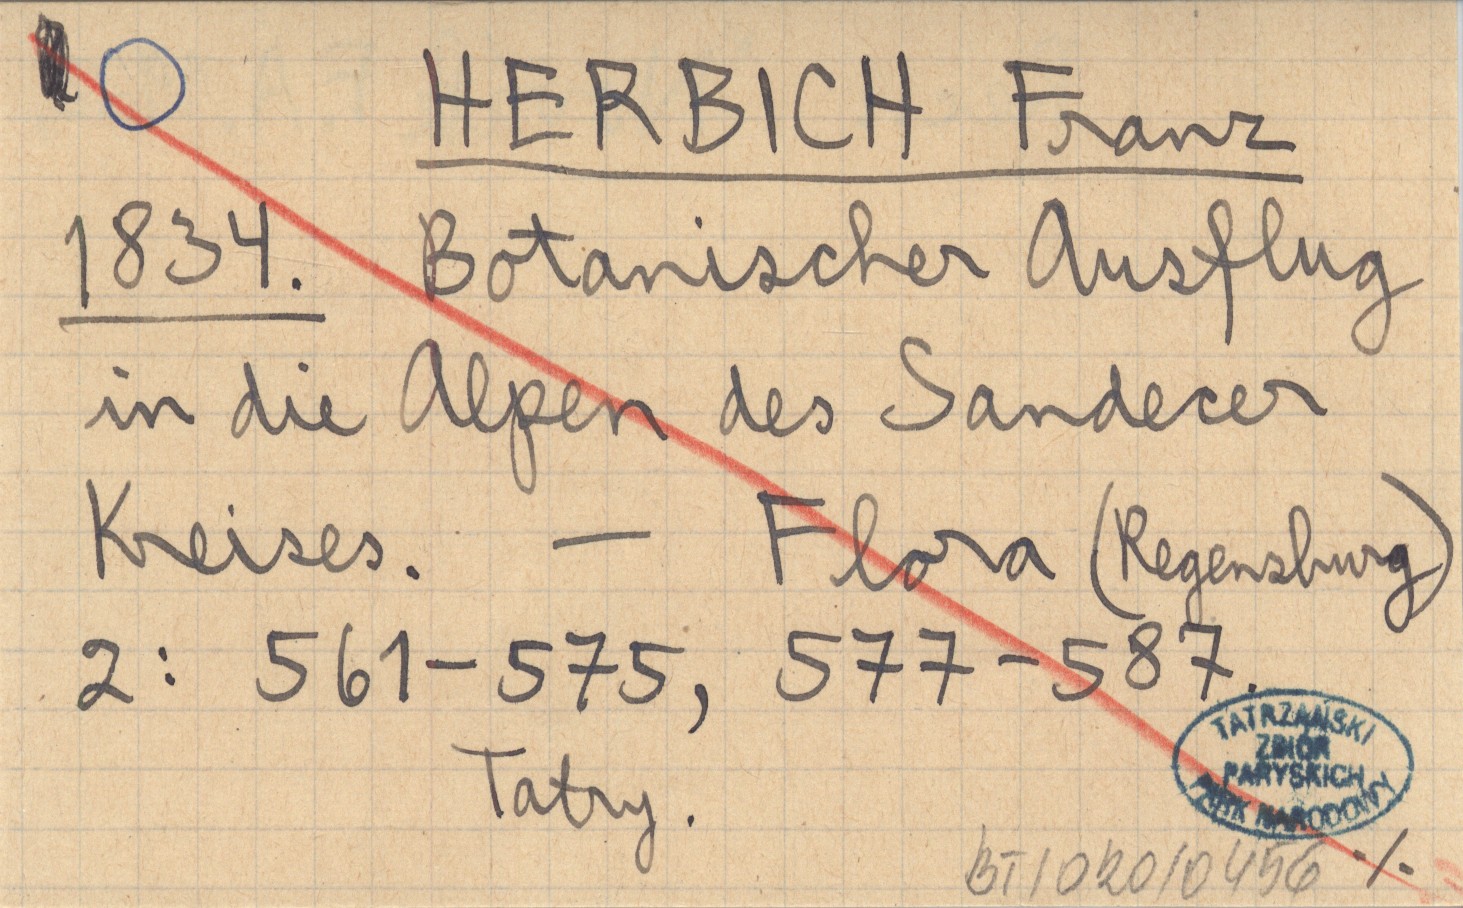 HERBICH Franz
1834. Botanischer Ausflug
in die Alpen des Sandecer
Kreises. — Flora (Regensburg)
2: 561-575, 577-587.
Tatry.
TATRZAŃSKI
ZBIÓR
PARYSKICH
PARK NARODOWY
BT/020/0456 ./.